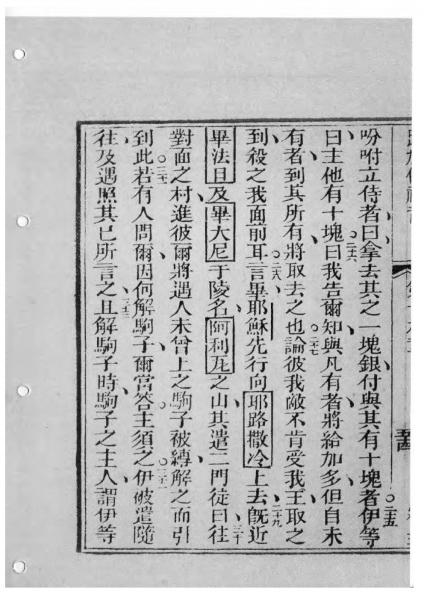 吩咐立侍者曰拿去其之一塊銀付與其有十塊者○二五伊等
曰主他有十塊○二六曰我告爾知與凡有者將給加多但自未
有者到其所有將取去之也○二七論彼我敵不肯受我王取之
到殺之我面前耳○二八言畢耶穌先行向耶路撒冷上去○二九既近
畢法且及畢大尼于陵名阿利瓦之山其遣二門徒曰○三十往
對面之村進彼爾將遇人未曾上之駒子被縛解之而引
到此○三一若有人問爾因何解駒子爾當答主須之○三二伊被遣隨
往及遇照其已所言之○三三且解駒子時駒子之主人謂伊等